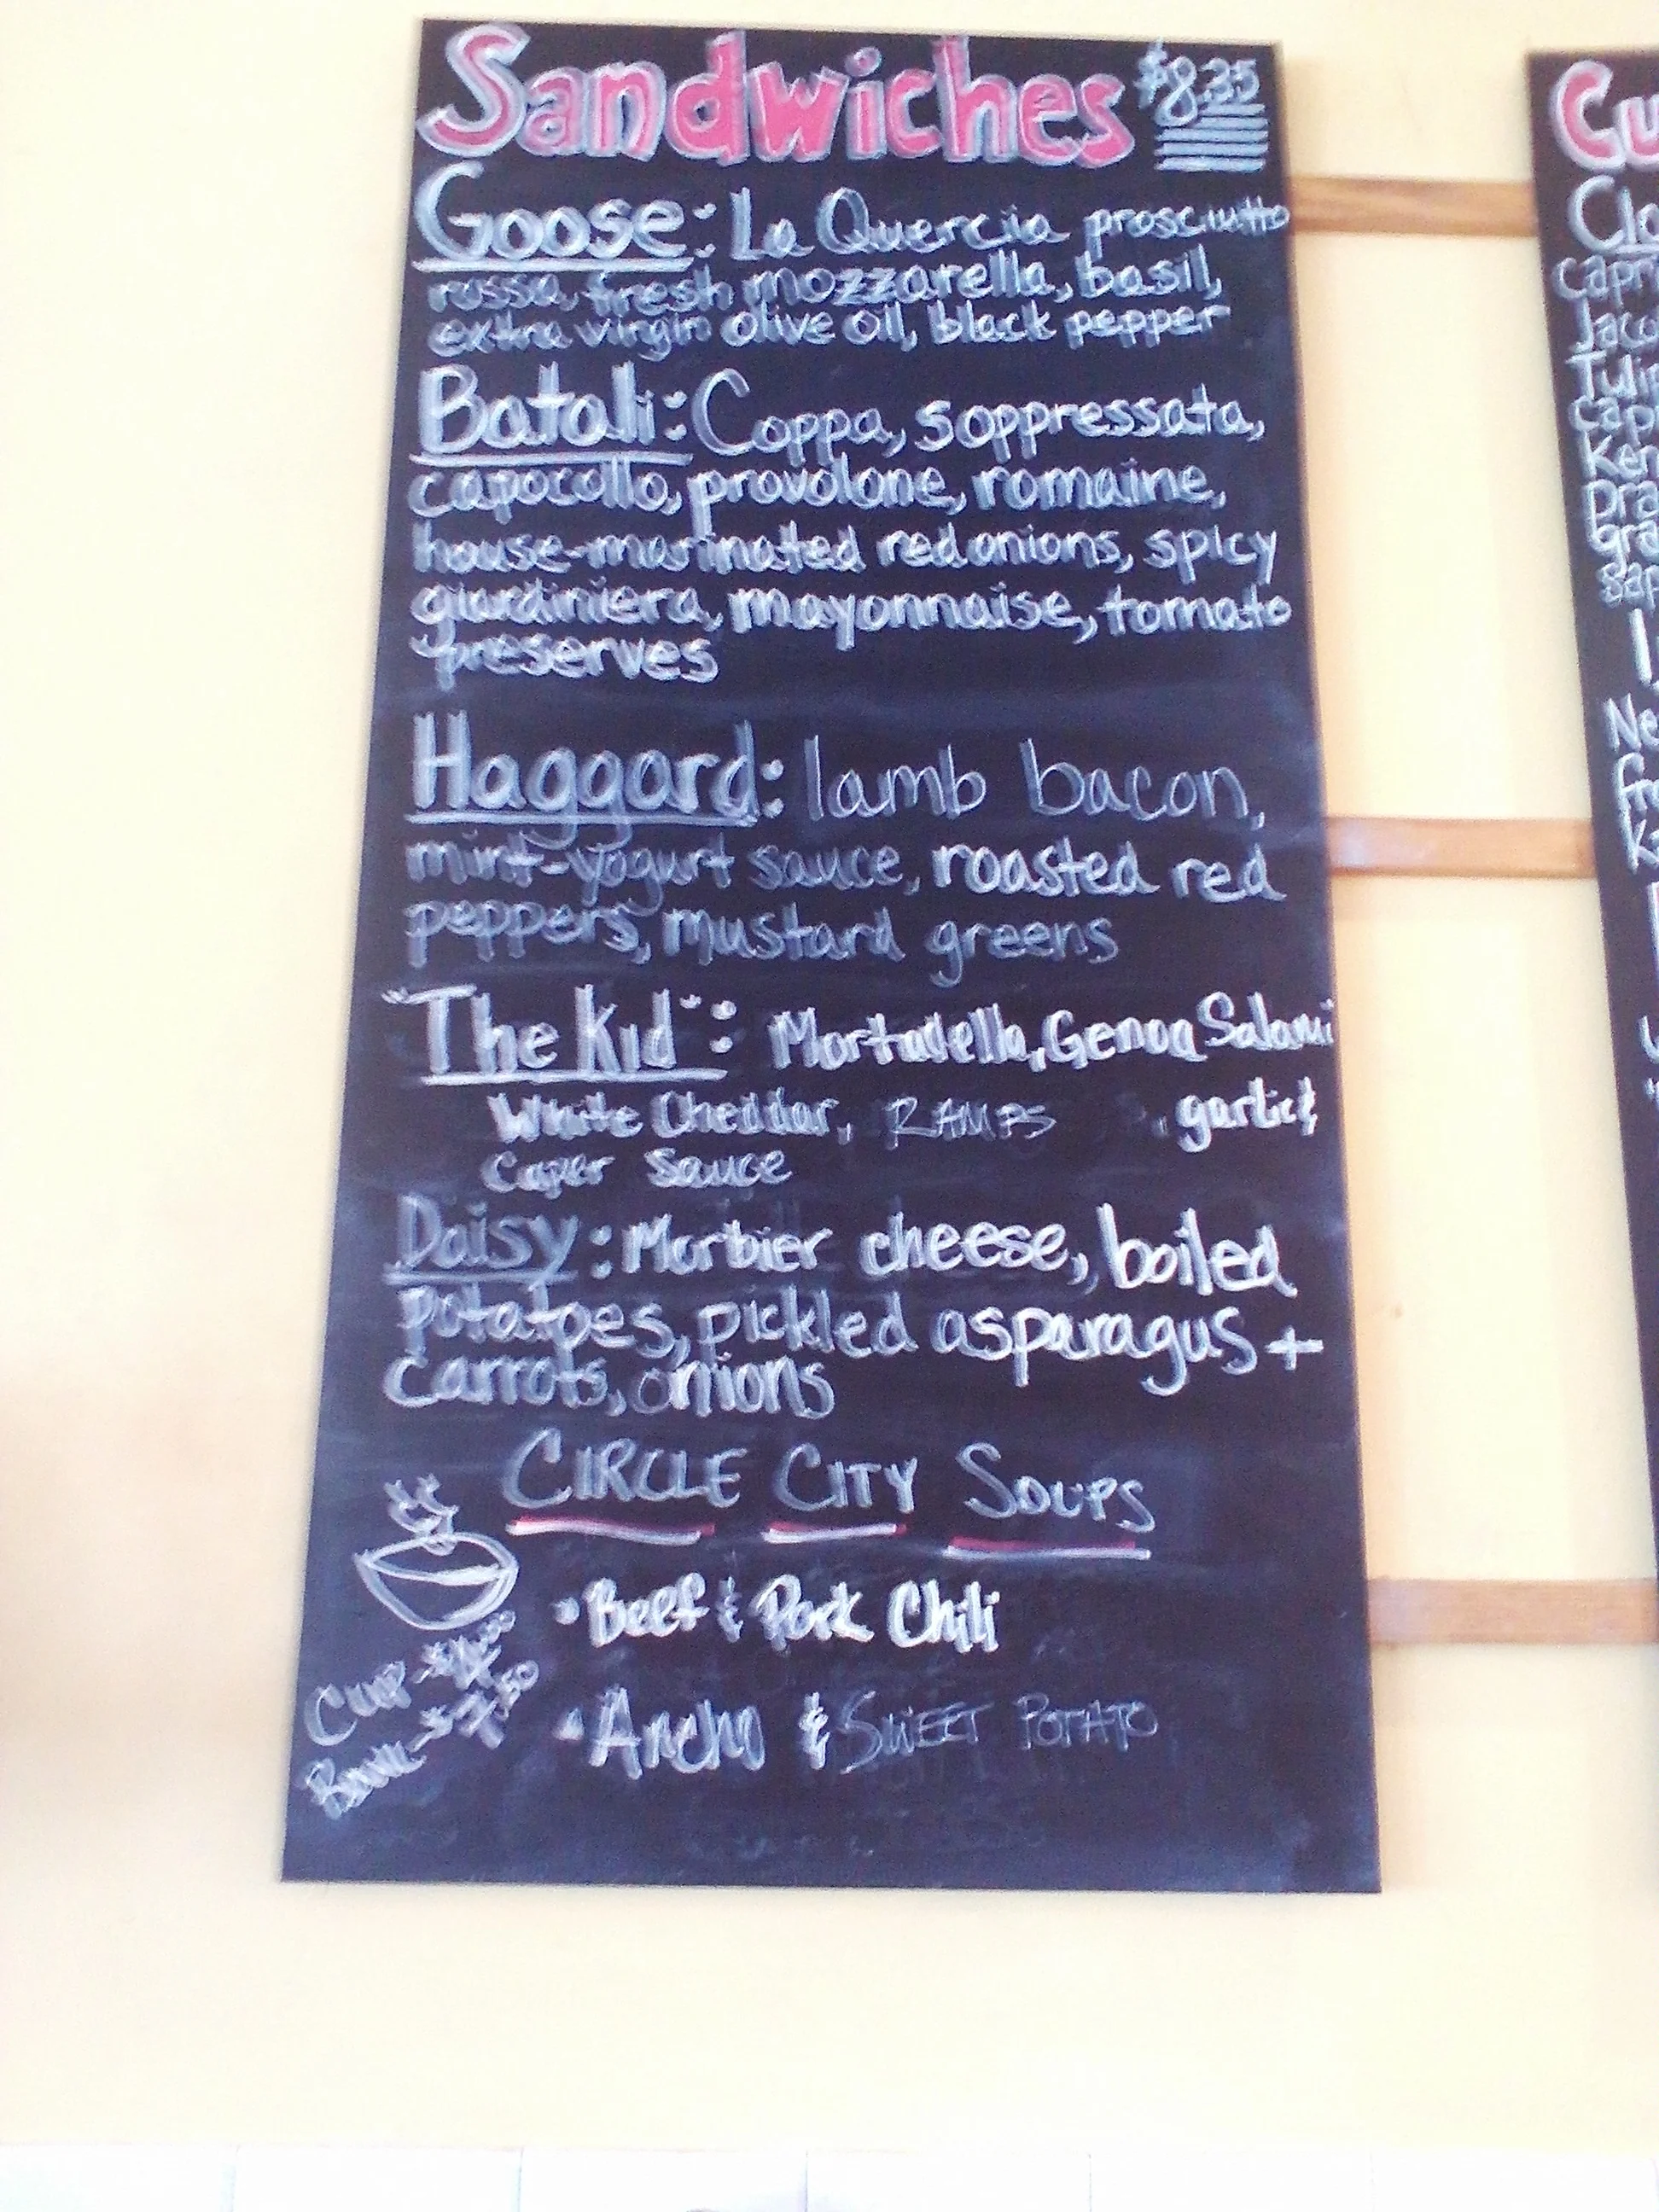 Sandwiches $8.35
Goose: La Quercia prosciutto
rossa, fresh mozzarella, basil,
extra virgin olive oil, black pepper
Batali: Coppa, soppressata,
capocollo, provolone, romaine,
house-marinated red onions, spicy
giardiniera, mayonnaise, tomato
preserves
Haggard: lamb bacon,
mint-yogurt sauce, roasted red
peppers, mustard greens
"The Kid": Mortadella, Genoa Salami
White Cheddar, RAMPS , garlic &
Caper Sauce
Daisy: Morbier cheese, boiled
potatoes, pickled asparagus +
carrots, onions
CIRCLE CITY SOUPS
• Beef & Pork Chili
• Ancho & SWEET POTATO
Cup - $4.00
Bowl - $7.50
Cu
Cla
capr
Jaco
Tulip
capi
Ken
Dra
Gra
sap
Ne